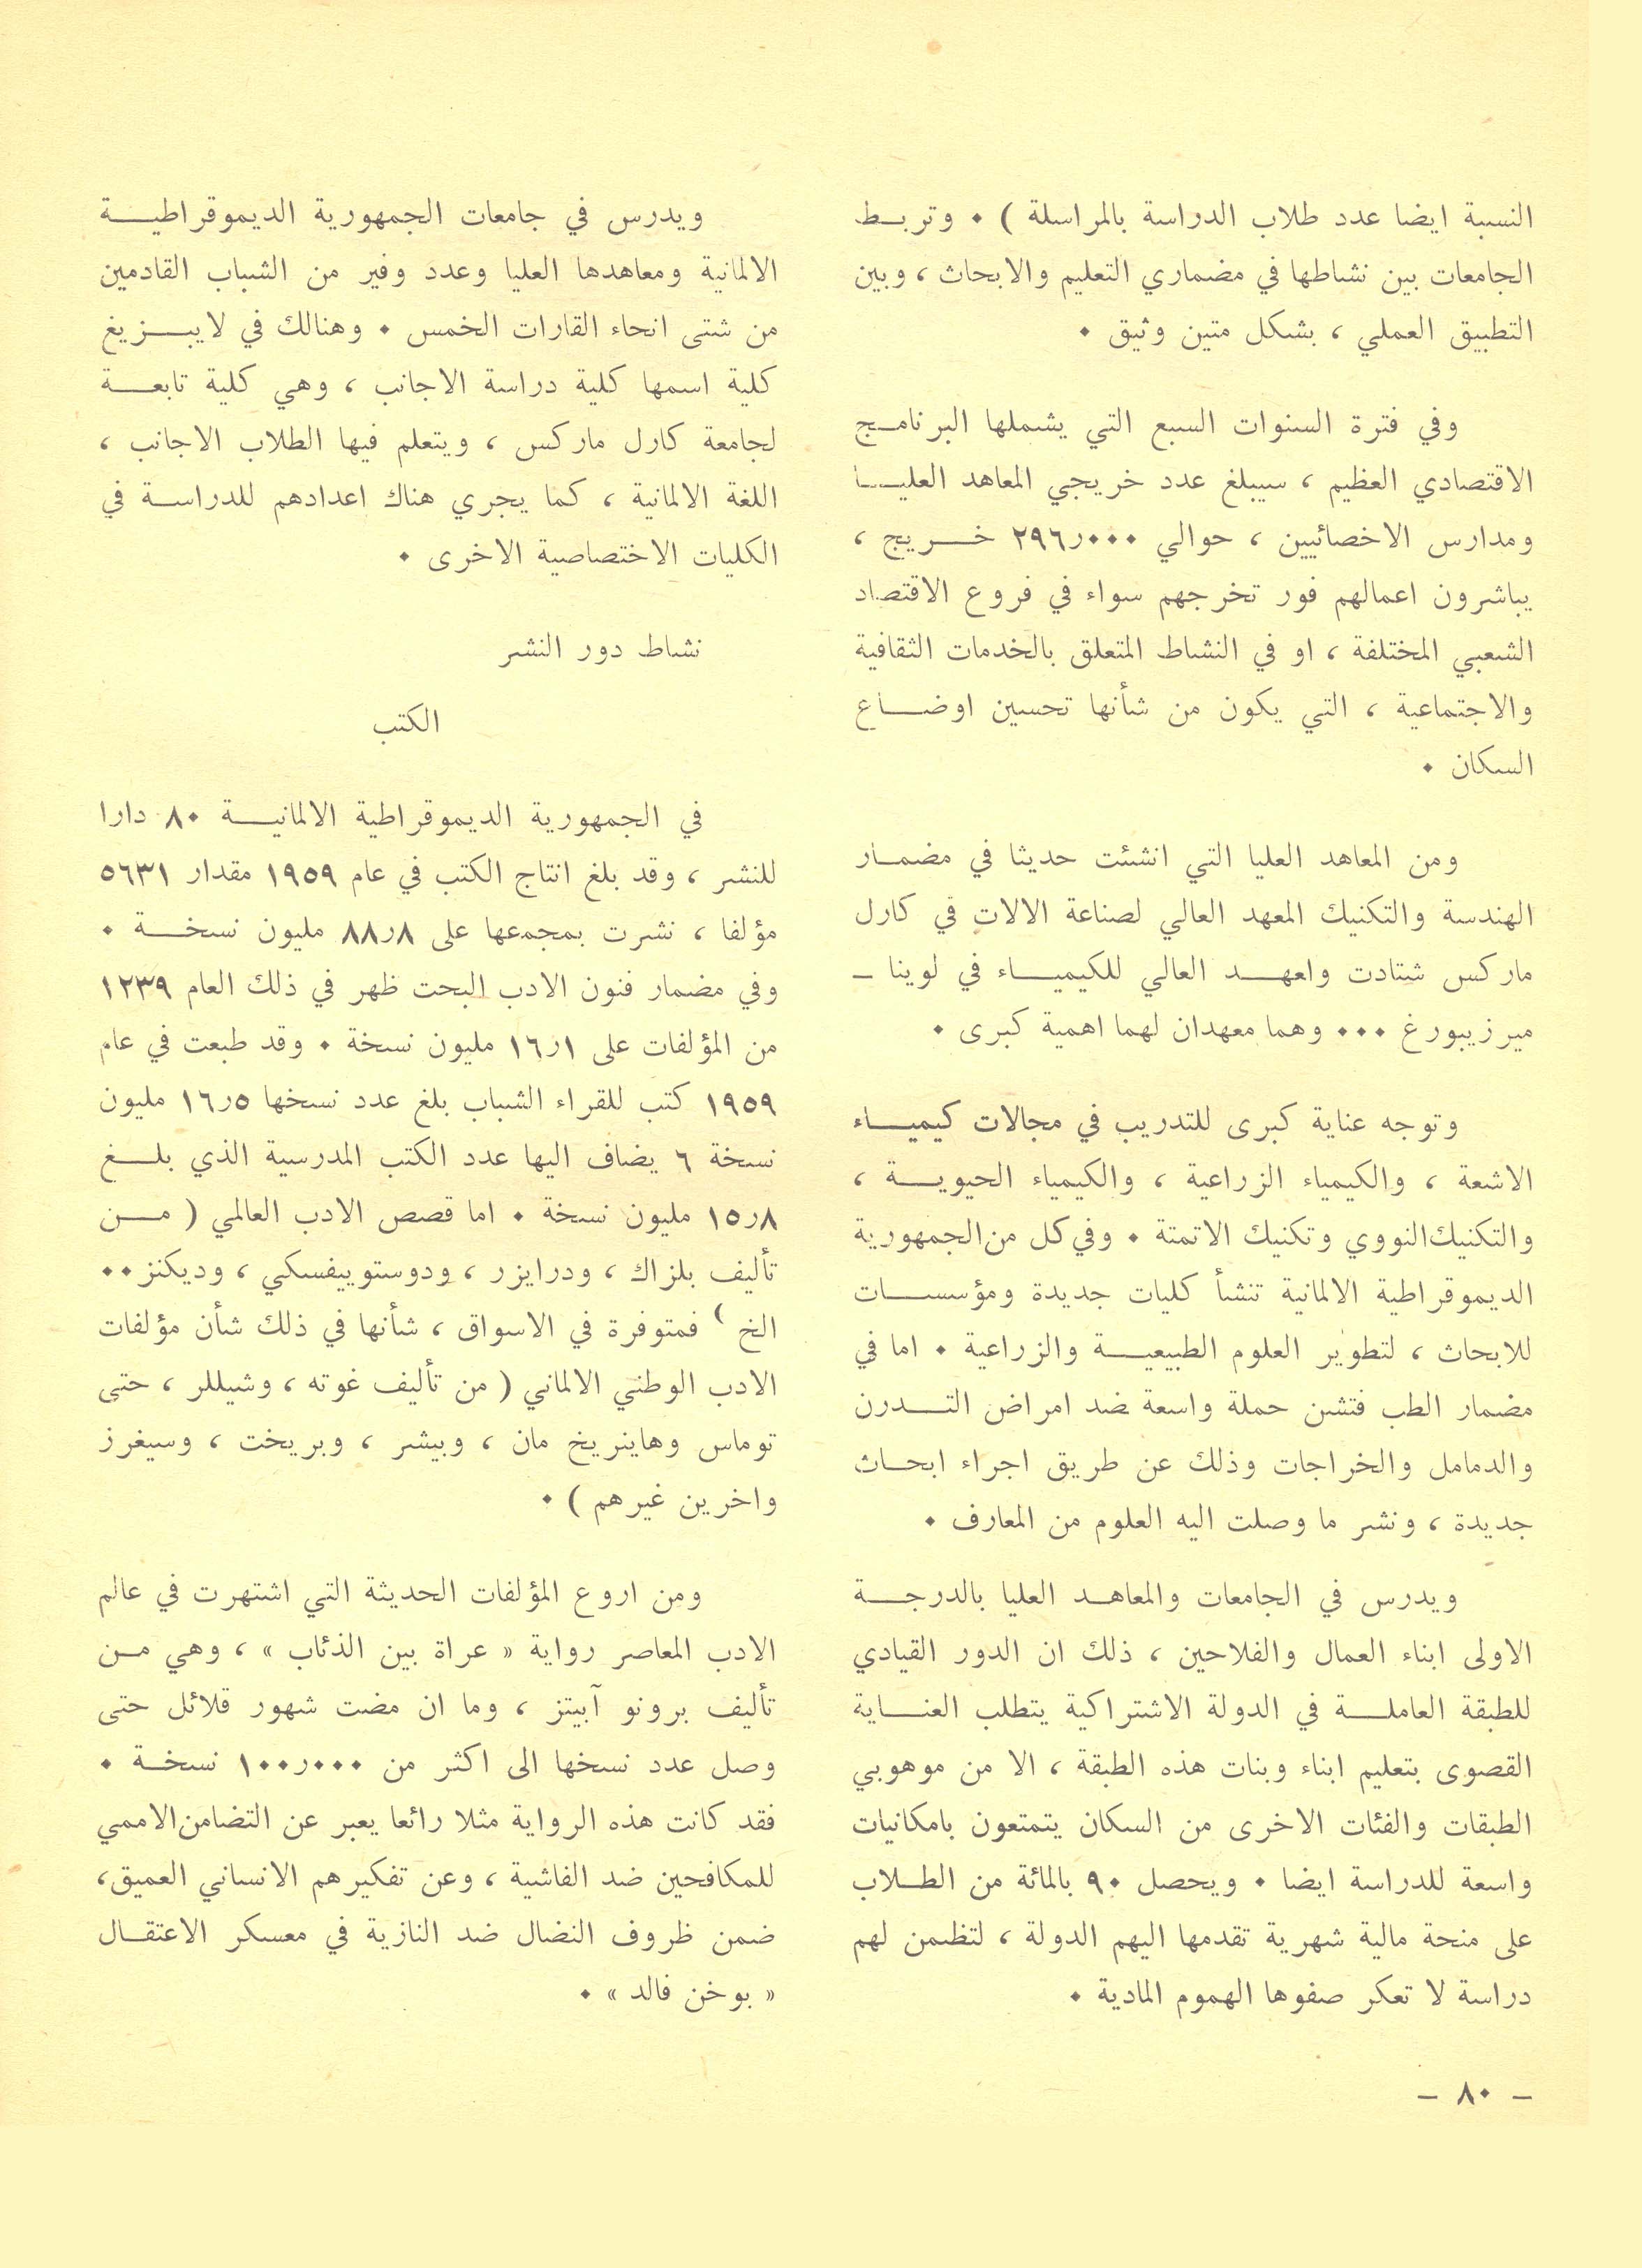 النسبة ايضا عدد طلاب الدراسة بالمراسلة ) ٠ وتربط
الجامعات بين نشاطها في مضماري التعليم والابحاث ، وبين
التطبيق العملي ، بشكل متين وثيق ٠
وفي فترة السنوات السبع التي يشملها البرنامج
الاقتصادي العظيم ، سيبلغ عدد خريجي المعاهد العليا
ومدارس الاخصائيين ، حوالي ٢٩٦ر٠٠٠ خريج ،
يباشرون اعمالهم فور تخرجهم سواء في فروع الاقتصاد
الشعبي المختلفة ، او في النشاط المتعلق بالخدمات الثقافية
والاجتماعية ، التي يكون من شأنها تحسين اوضاع
السكان ٠
ومن المعاهد العليا التي انشئت حديثا في مضمار
الهندسة والتكنيك المعهد العالي لصناعة الالات في كارل
ماركس شتادت واعهد العالي للكيمياء في لوينا –
ميرزيبورغ ٠٠٠ وهما معهدان لهما اهمية كبرى ٠
وتوجه عناية كبرى للتدريب في مجالات كيمياء
الاشعة ، والكيمياء الزراعية ، والكيمياء الحيوية ،
والتكنيك النووي وتكنيك الاتمتة ٠ وفي كل من الجمهورية
الديموقراطية الالمانية تنشأ كليات جديدة ومؤسسات
للابحاث ، لتطوير العلوم الطبيعية والزراعية ٠ اما في
مضمار الطب فتشن حملة واسعة ضد امراض التدرن
والدمامل والخراجات وذلك عن طريق اجراء ابحاث
جديدة ، ونشر ما وصلت اليه العلوم من المعارف ٠
ويدرس في الجامعات والمعاهد العليا بالدرجة
الاولى ابناء العمال والفلاحين ، ذلك ان الدور القيادي
للطبقة العاملة في الدولة الاشتراكية يتطلب العناية
القصوى بتعليم ابناء وبنات هذه الطبقة ، الا من موهوبي
الطبقات والفئات الاخرى من السكان يتمتعون بامكانيات
واسعة للدراسة ايضا ٠ ويحصل ٩٠ بالمائة من الطلاب
على منحة مالية شهرية تقدمها اليهم الدولة ، لتظمن لهم
دراسة لا تعكر صفوها الهموم المادية ٠
ويدرس في جامعات الجمهورية الديموقراطية
الالمانية ومعاهدها العليا وعدد وفير من الشباب القادمين
من شتى انحاء القارات الخمس ٠ وهنالك في لايبزيغ
كلية اسمها كلية دراسة الاجانب ، وهي كلية تابعة
لجامعة كارل ماركس ، ويتعلم فيها الطلاب الاجانب ،
اللغة الالمانية ، كما يجري هناك اعدادهم للدراسة في
الكليات الاختصاصية الاخرى ٠
نشاط دور النشر
الكتب
في الجمهورية الديموقراطية الالمانية ٨٠ دارا
للنشر ، وقد بلغ انتاج الكتب في عام ١٩٥٩ مقدار ٥٦٣١
مؤلفا ، نشرت بمجمعها على ٨٨ر٨ مليون نسخة ٠
وفي مضمار فنون الادب البحت ظهر في ذلك العام ١٢٣٩
من المؤلفات على ١٦ر١ مليون نسخة ٠ وقد طبعت في عام
١٩٥٩ كتب للقراء الشباب بلغ عدد نسخها ١٦ر٥ مليون
نسخة ٦ يضاف اليها عدد الكتب المدرسية الذي بلغ
١٥ر٨ مليون نسخة ٠ اما قصص الادب العالمي ( من
تأليف بلزاك ، ودرايزر ، ودوستوييفسكي ، وديكنز٠٠
الخ ) فمتوفرة في الاسواق ، شأنها في ذلك شأن مؤلفات
الادب الوطني الالماني ( من تأليف غوته ، وشيللر ، حتى
توماس وهاينريخ مان ، وبيشر ، وبريخت ، وسيغرز
واخرين غيرهم ) ٠
ومن اروع المؤلفات الحديثة التي اشتهرت في عالم
الادب المعاصر رواية « عراة بين الذئاب » ، وهي من
تأليف برونو آبيتز ، وما ان مضت شهور قلائل حتى
وصل عدد نسخها الى اكثر من ١٠٠ر٠٠٠ نسخة ٠
فقد كانت هذه الرواية مثلا رائعا يعبر عن التضامن الاممي
للمكافحين ضد الفاشية ، وعن تفكيرهم الانساني العميق،
ضمن ظروف النضال ضد النازية في معسكر الاعتقال
« بوخن فالد » ٠
– ٨٠ –